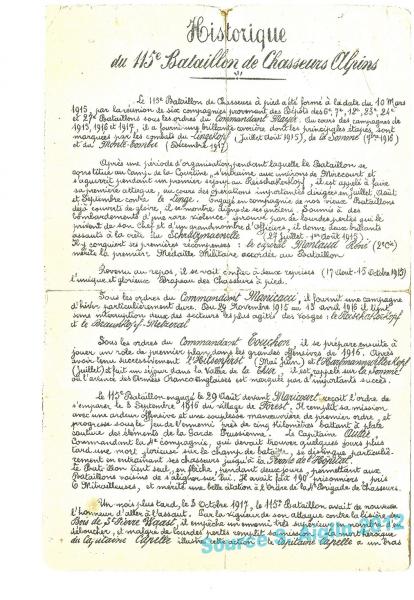 Historique
du 115e Bataillon de Chasseurs Alpins
Le 115e Bataillon de Chasseurs à pied a été formé à la date du 10 Mars
1915, par la réunion de six compagnies provenant des Dépôts des 6e, 7e, 12e, 23e, 24e
et 27e Bataillons sous les ordres du Commandant Au cours des campagnes de
1915, 1916 et 1917, il a fourni une brillante carrière dont les principales étapes, sont
marquées par les combats du Lingekopf (Juillet Août 1915), de la Somme (7bre 1916)
et du Monte-Tomba (Décembre 1917)
Après une période d'organisation, pendant laquelle le Bataillon se
constitue au Camp de la Courtine, s'entraine aux environs de Mirecourt et
s'aguerrit pendant un premier séjour au Reichackerkopf, il est appelé à faire
sa première attaque, au cours des opérations importantes engagées en Juillet Août
et Septembre contre le Linge. Engagé en compagnie de nos vieux Bataillons
déjà couverts de gloire, il se montre digne de ses anciens. Soumis à des
bombardements d'une rare violence, éprouvé par de lourdes pertes qui le
privent de son Chef et d'un grand nombre d'Officiers, il donne deux brillants
assauts à la côte du Schratzmannele (27 Juillet - 1er Août 1915).
Il y conquiert ses premières récompenses : le caporal Montaud René (2e Cie)
mérite la première Médaille Militaire accordée au Bataillon
Revenu au repos, il se voit confier à deux reprises (17 Août - 15 Octobre 1915)
l'unique et glorieux Drapeau des Chasseurs à pied.
Sous les ordres du Commandant il fournit une campagne
d'hiver particulièrement dure. Du 29 Novembre 1915 au 13 Avril 1916 il tient
sans interruption deux des secteurs les plus agités des Vosges : le Reichackerkopf
et le Braunkopf-Metzeral
Sous les ordres du Commandant Touchon, il se prépare ensuite à
jouer un rôle de premier plan, dans les grandes offensives de 1916. Après
avoir tenu successivement l'Hilsenfirst (Mai Juin) et l'Hartmannswillerkopf
(Juillet) et fait un séjour dans la Vallée de la Thur, il est rappelé sur la Somme
où l'avance des Armées Franco-Anglaises est marquée par d'importants succès.
Le 115e Bataillon engagé le 29 Août devant Maricourt reçoit l'ordre de
s'emparer le 4 Septembre 1916 du village de Forest. Il remplit sa mission
avec une ardeur offensive et une souplesse manoeuvrière de premier ordre ;
progresse sous le feu de Vermand près de cinq kilomètres battant à plate
couture des éléments de la Garde Prussienne. Le Capitaine
Commandant la 4e Compagnie, qui devait trouver quelques jours plus
tard une mort glorieuse sur le champ de bataille, se distingue particuliè-
rement en entraînant ses chasseurs jusqu'à la Ferme de l'Hôpital
Le Bataillon tient seul, en flèche, pendant deux jours, permettant aux
Bataillons voisins de s'aligner sur lui. Il avait fait 190 prisonniers, pris
6 Mitrailleuses, et mérité une belle citation à l'Ordre de la 4e Brigade de chasseurs.
Un mois plus tard, le 3 Octobre 1917, le 115e Bataillon avait de nouveau
l'honneur d'aller à l'assaut. Par la vigueur de son attaque contre la lisière du
Bois de St Pierre Waast, il empêche un ennemi très supérieur en nombre de
déboucher, et malgré de lourdes pertes remplit sa mission. La mort héroïque
du Capitaine Capelle illustre cette action : le Capitaine Capelle a un bras
Source S. Aiglin 2012